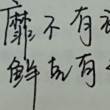 靡不有
鲜克有